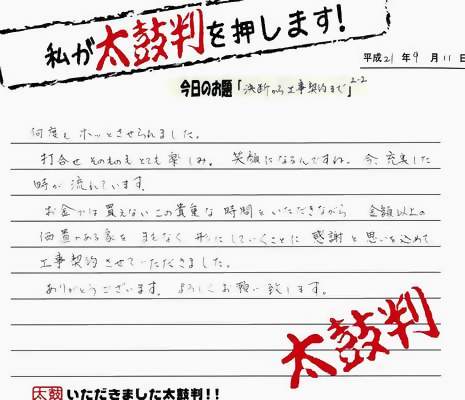 私が太鼓判を押します!
平成21年9月11日
今日のお題「決断から工事契約まで」2-2
何度もホッとさせられました。
打合せそのものもとても楽しみ。笑顔になるんですね。今、充実した
時が流れています。
お金では買えないこの貴重な時間をいただきながら 金額以上の
価値のある家をまもなく形にしていくことに感謝と思いを込めて
工事契約させていただきました。
ありがとうございます。よろしくお願い致します。
太鼓判
太鼓いただきました太鼓判!!